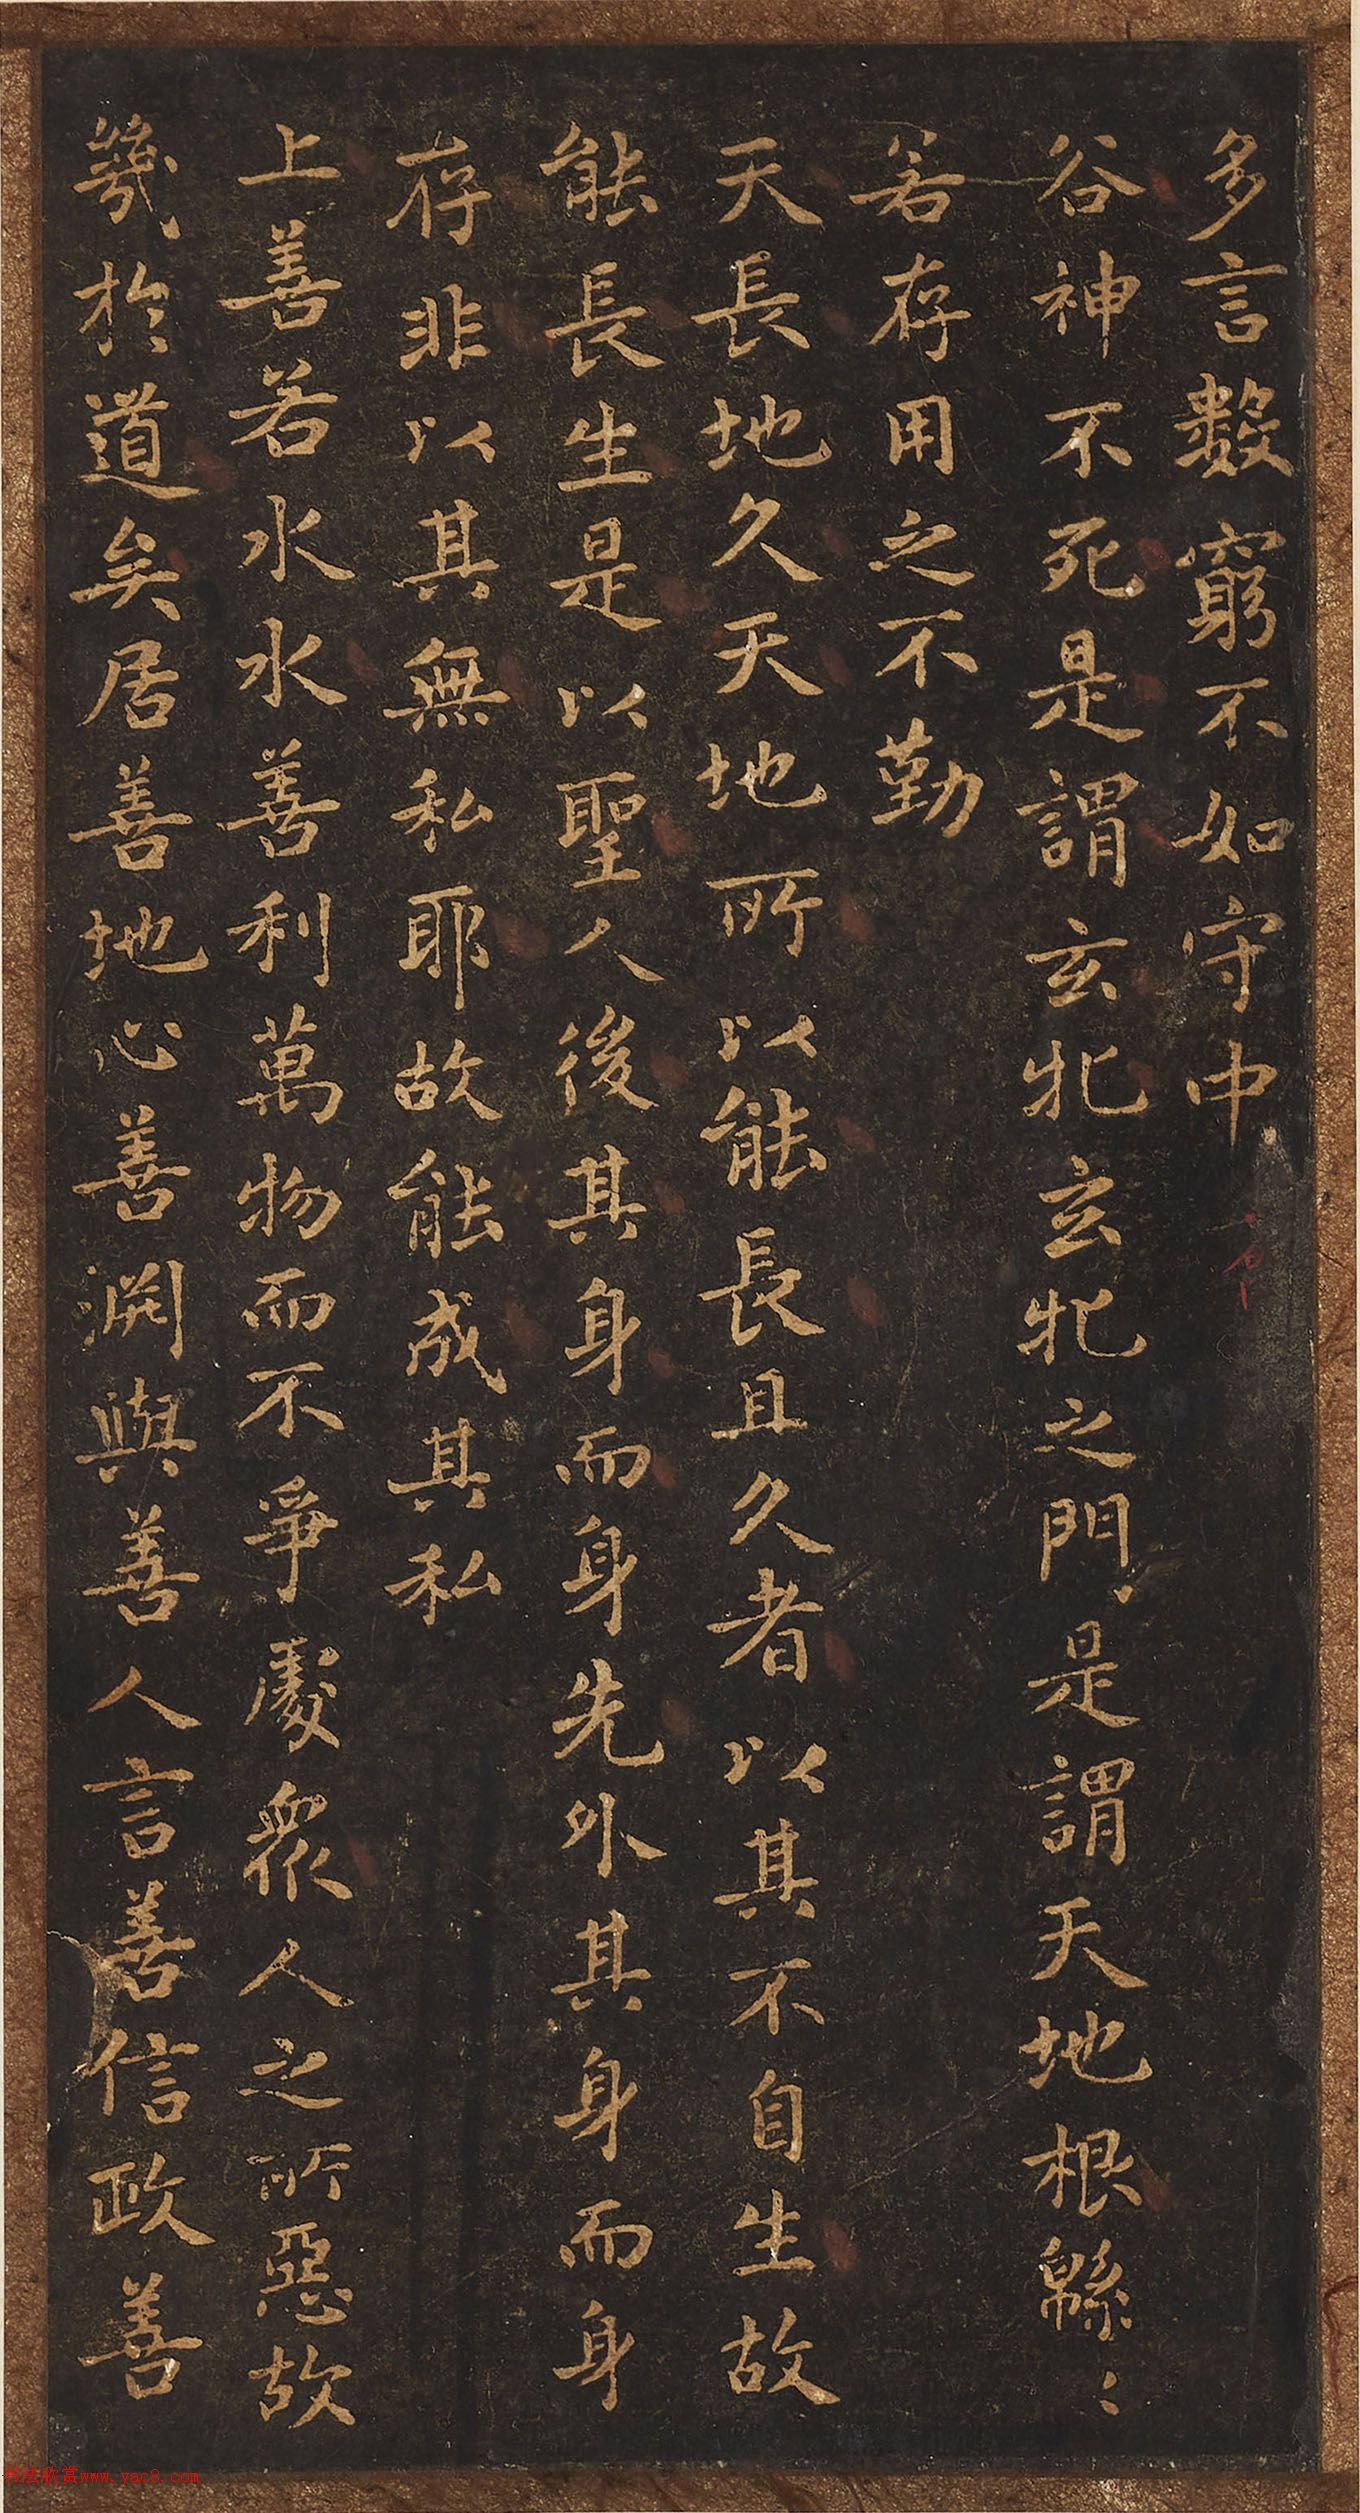 多言數窮不如守中
谷神不死是謂玄牝玄牝之門是謂天地根緜〻
若存用之不勤
天長地久天地所以能長且久者以其不自生故
能長生是以聖人後其身而身先外其身而身
存非以其無私耶故能成其私
上善若水水善利萬物而不爭處衆人之所惡故
幾於道矣居善地心善渊與善人言善信政善
书法欣赏www.yac8.com